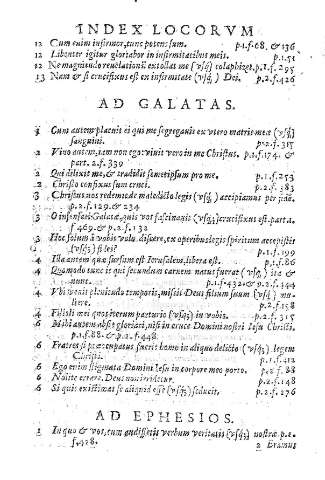 INDEX LOCORVM
12 Cum enim infirmor, tunc potens sum. p.1.f.68. & 136
12 Libenter igitur gloriabor in infirmitatibus meis. p.1.51
12 Ne magnitudo reuelationũ extollat me (vsq;) colaphizet. p.1.f.295
13 Nam & si crucifixus est ex infirmitate (vsq;) Dei. p.2.f.426
AD GALATAS.
1 Cum autem placuit ei qui me segregauit ex vtero matris meæ (vsq;)
sanguini. p.2.f.317
2 Viuo autem, iam non ego: viuit vero in me Christus. p.1.f.174. &
part.2.f.339
2 Qui dilexit me, & tradidit semetipsum pro me. p.1.f.253
2 Christo confixus sum cruci. p.2.f.383
3 Christus nos redemit de maledicto legis (vsq;) accipiamus per fidẽ.
p.2.f.129. & 234
3 O insensati Galatæ, quis vos fascinauit (vsq;) crucifixus est. part.1.
f.469. & p.2.f.132
3 Hoc solum à vobis volo discere, ex operibus legis spiritum accepistis
(vsq;) fidei? p.1.f.199
4 Illa autem quæ sursum est Ierusalem, libera est. p.1.f.86
4 Quomodo tunc is qui secundum carnem natus fuerat (vsq;) ita &
nunc. p.1.f.432. & p.2.f.344
4 Vbi venit plenitudo temporis, misit Deus filium suum (vsq;) mu-
liere. p.2.f.158
4 Filioli mei quos iterum parturio (vsq;) in vobis. p.2.f.315
6 Mihi autem absit gloriari, nisi in cruce Domini nostri Iesu Christi.
p.1.f.88. & p.2.f.448
6 Fratres si præoccupatus fuerit homo in aliquo delicto (vsq;) legem
Christi. p.1.f.412
6 Ego enim stigmata Domini Iesu in corpore meo porto. p.2.f.88
6 Nolite errare, Deus non irridetur. p.2.f.148
6 Si quis existimat se aliquid esse (vsq;) seducit. p.2.f.276
AD EPHESIOS.
1 In quo & vos, cum audissetis verbum veritatis (vsq;) nostræ. p.1.
f.428. 2 Eramus